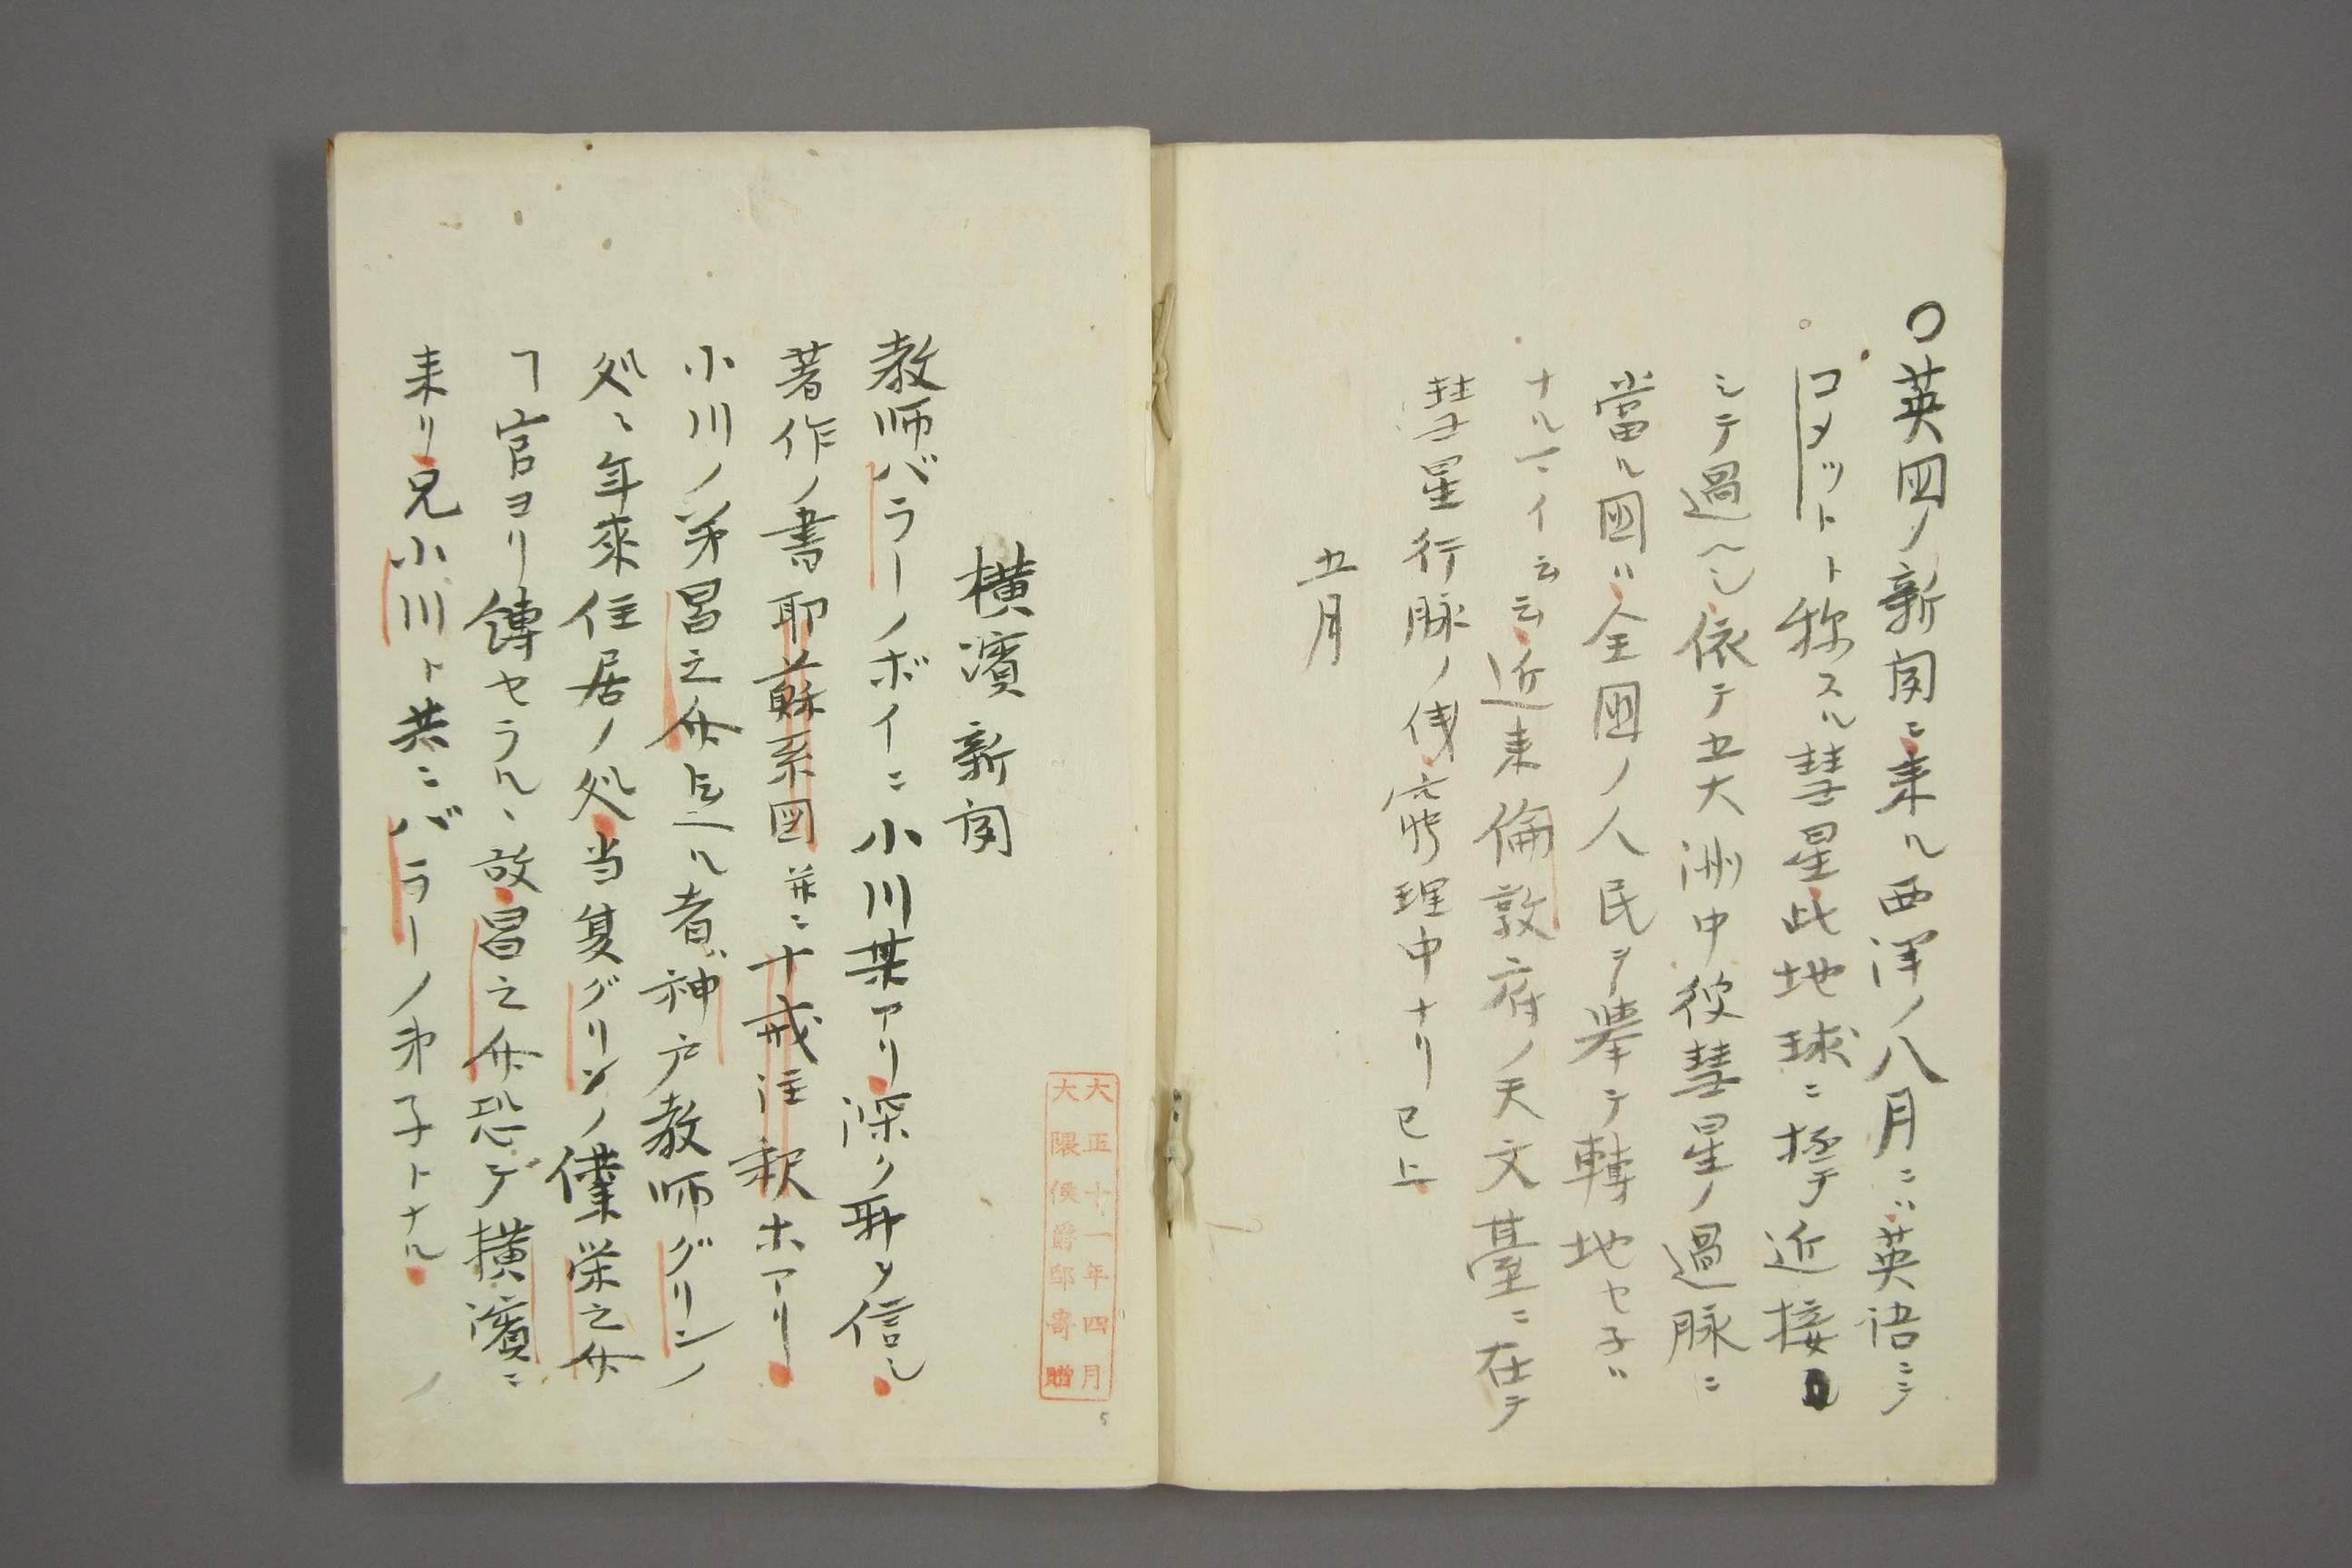 〇英国ノ新聞ニ来ル西洋ノ八月ニハ英語ニシテ
コメットト称スル彗星此地球ニ極テ近接ニ
シテ過ヘシ依テ五大洲中彼彗星ノ過脉ニ
當ル國ハ全国ノ人民ヲ挙テ轉地セ子ハ
ナルマイ云云近来倫敦府ノ天文臺ニ在テ
彗星行脉ノ 窮理中ナリ已上
五月
横濱新聞
教師バラーノボイニ小川某アリ深ク耶ソ信し
著作ノ書耶蘇系図並ニ十戒注釈ホアリ
小川ノ弟昌之介ト云ル者ハ神戸教師グリンノ
処ニ年來住居ノ処当夏グリンノ僕栄之介
ヿ官ヨリ縛セラル、故昌之介恐デ横濱ニ
来リ兄小川ト共ニバラーノ弟子トナル
大正十一年四月
大隈侯爵邸寄贈
5